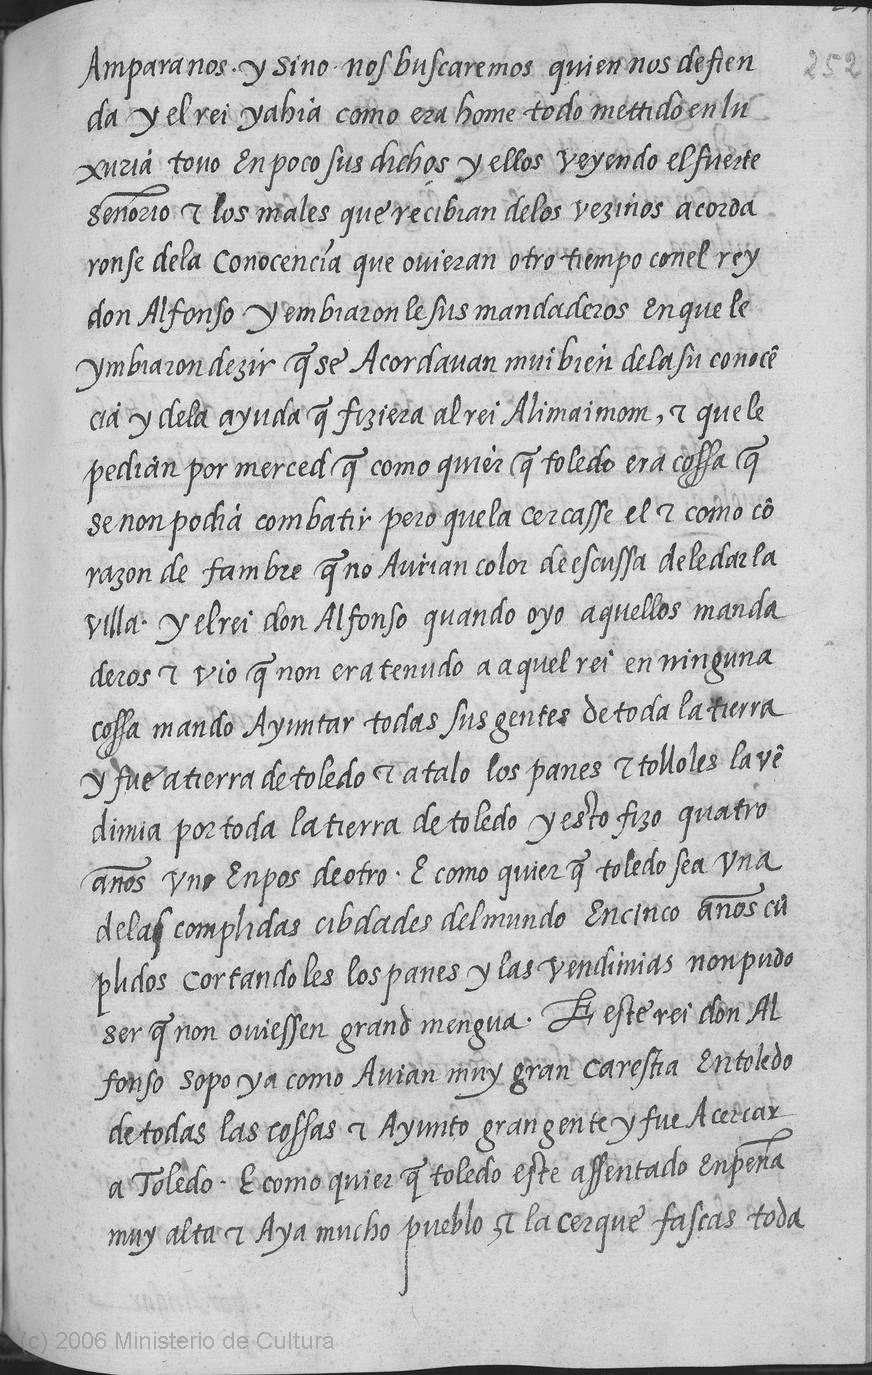 252
Amparanos. y sino nos buscaremos quien nos defien
da y el rei yahia como era home todo mettido en lu
xuria touo En poco sus dichos y ellos veyendo el fuerte
señorio τ los males que recibian de los vezinos acorda
ronse dela Conocencia que ouieran otro tiempo conel rey
don Alfonso y embiaron le sus mandaderos En que le
ymbiaron dezir q̃ se Acordauan mui bien dela su conocẽ
cia y dela ayuda q̃ fiziera al rei Alimaimom, τ que le
pedian por merced q̃ como quier q̃ toledo era cossa q̃
se non podia combatir pero quela cercasse el τ como cõ
razon de fambre q̃ no Aurian color de escussa de le dar la
villa. y el rei don Alfonso quando oyo aquellos manda
deros τ vio q̃ non era tenudo a aquel rei en ninguna
cossa mando Ayuntar todas sus gentes de toda la tierra
y fue a tierra de toledo τ a talo los panes τ tolloles la vẽ
dimia por toda la tierra de toledo y esto fizo quatro
años vno En pos de otro. E como quier q̃ toledo sea vna
delas complidas cibdades del mundo En cinco años cũ
plidos cortando les los panes y las vendimias non pudo
ser q̃ non ouiessen grand mengua. E este rei don Al
fonso sopo ya como Auian muy gran Carestia En toledo
de todas las cossas τ Ayunto gran gente y fue Acercar
a Toledo. E como quier q̃ toledo este assentado En peña
muy alta τ Aya mucho pueblo τ la cerque fascas toda
(c) 2006 Ministerio de Cultura